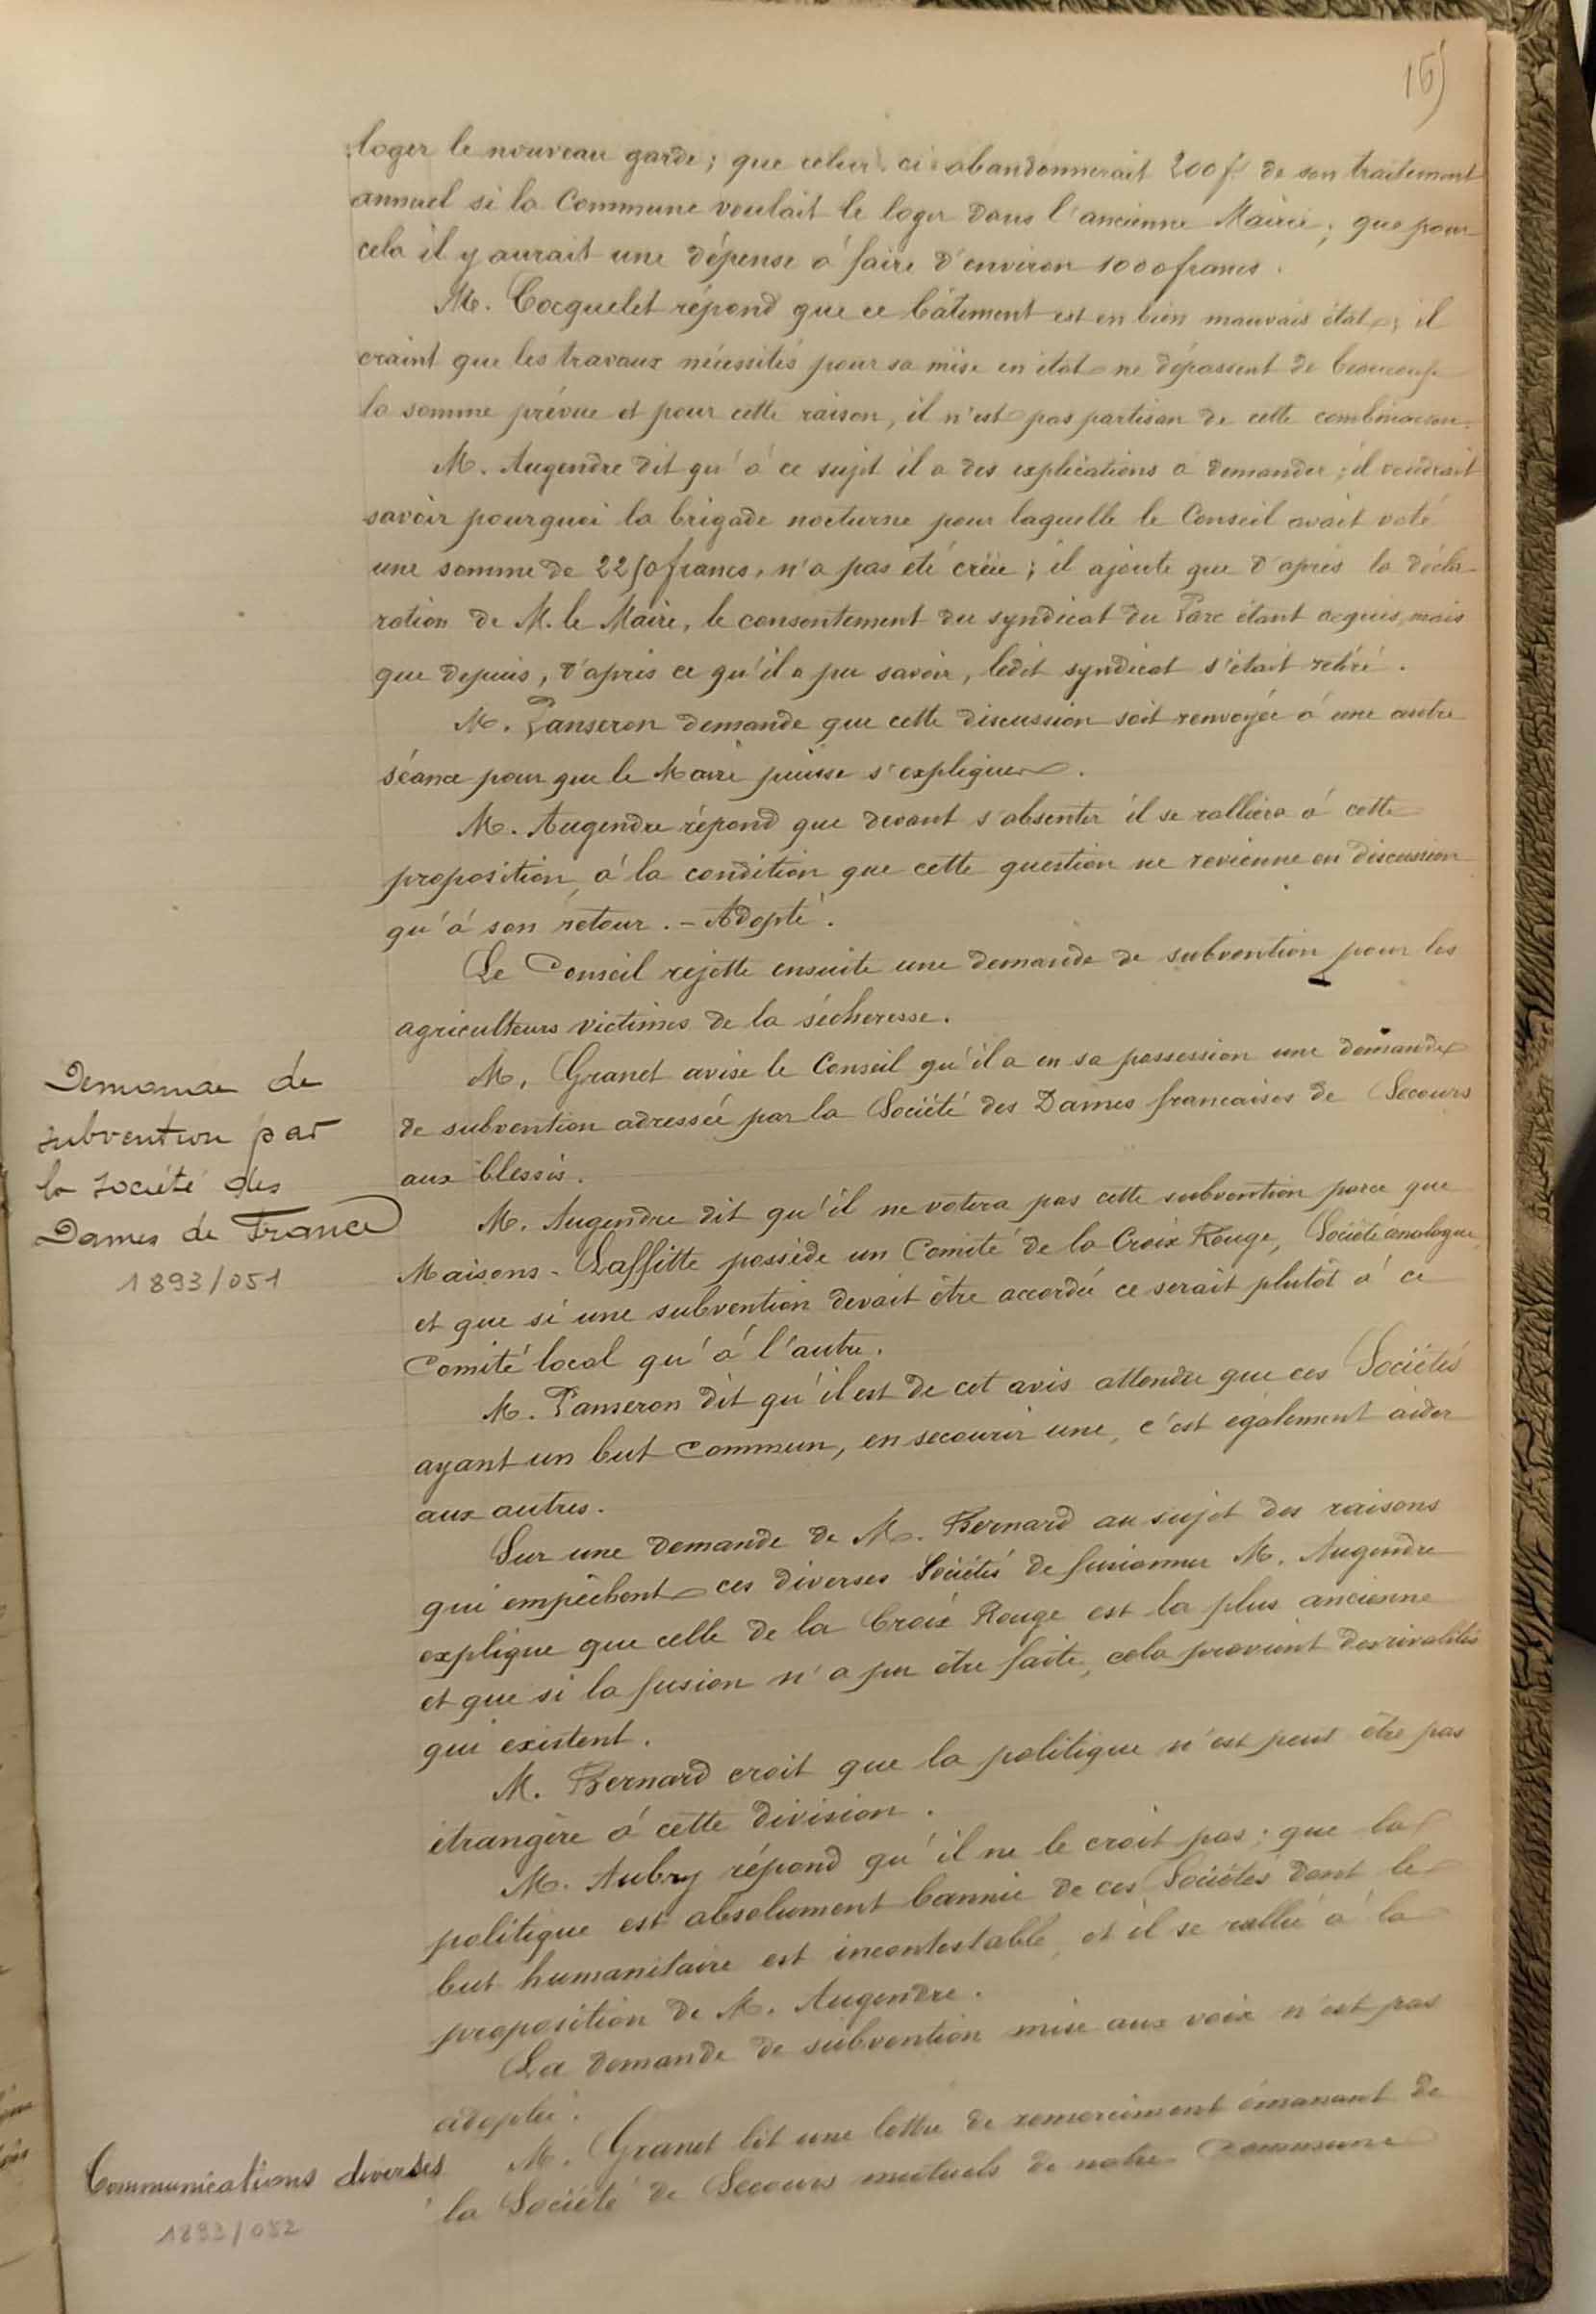 15)
loger le nouveau garde; que celui-ci abandonnerait 200f. de son traitement
annuel si la Commune voulait le loger dans l'ancienne Mairie; que pour
cela il y aurait une dépense à faire d'environ 1000 francs.
M. Cocquelet répond que ce bâtiment est en bien mauvais état; il
craint que les travaux nécessités pour sa mise en état ne dépassent de beaucoup
la somme prévue et pour cette raison, il n'est pas partisan de cette combinaison.
M. Augendre dit qu'à ce sujet il a des explications à demander; il voudrait
savoir pourquoi la brigade nocturne pour laquelle le Conseil avait voté
une somme de 2250 francs, n'a pas été créée; il ajoute que d'après la décla-
ration de M. le Maire, le consentement du syndicat du Parc étant acquis, mais
que depuis, d'après ce qu'il a pu savoir, ledit syndicat s'était retiré.
M. Panseron demande que cette discussion soit renvoyée à une autre
séance pour que le Maire puisse s'expliquer.
M. Augendre répond que devant s'absenter il se ralliera à cette
proposition, à la condition que cette question ne revienne en discussion
qu'à son retour. - Adopté.
Le Conseil rejette ensuite une demande de subvention pour les
agriculteurs victimes de la sécheresse.
Demande de
subvention par
la société des
Dames de France
1893/051
M. Granet avise le Conseil qu'il a en sa possession une demande
de subvention adressée par la Société des Dames françaises de Secours
aux blessés.
M. Augendre dit qu'il ne votera pas cette subvention parce que
Maisons-Laffitte possède un Comité de la Croix Rouge, Société analogue,
et que si une subvention devait être accordée ce serait plutôt à ce
Comité local qu'à l'autre.
M. Panseron dit qu'il est de cet avis attendu que ces Sociétés
ayant un but commun, en secourir une, c'est également aider
aux autres.
Sur une demande de M. Bernard au sujet des raisons
qui empêchent ces diverses Sociétés de fusionner M. Augendre
explique que celle de la Croix Rouge est la plus ancienne
et que si la fusion n'a pu être faite, cela provient des rivalités
qui existent.
M. Bernard croit que la politique n'est peut être pas
étrangère à cette division.
M. Aubry répond qu'il ne le croit pas; que la
politique est absolument bannie de ces Sociétés dont le
but humanitaire est incontestable, et il se rallie à la
proposition de M. Augendre.
La demande de subvention mise aux voix n'est pas
adoptée.
Communications diverses
1893/052
M. Granet lit une lettre de remerciement émanant de
la Société de Secours mutuels de notre Commune